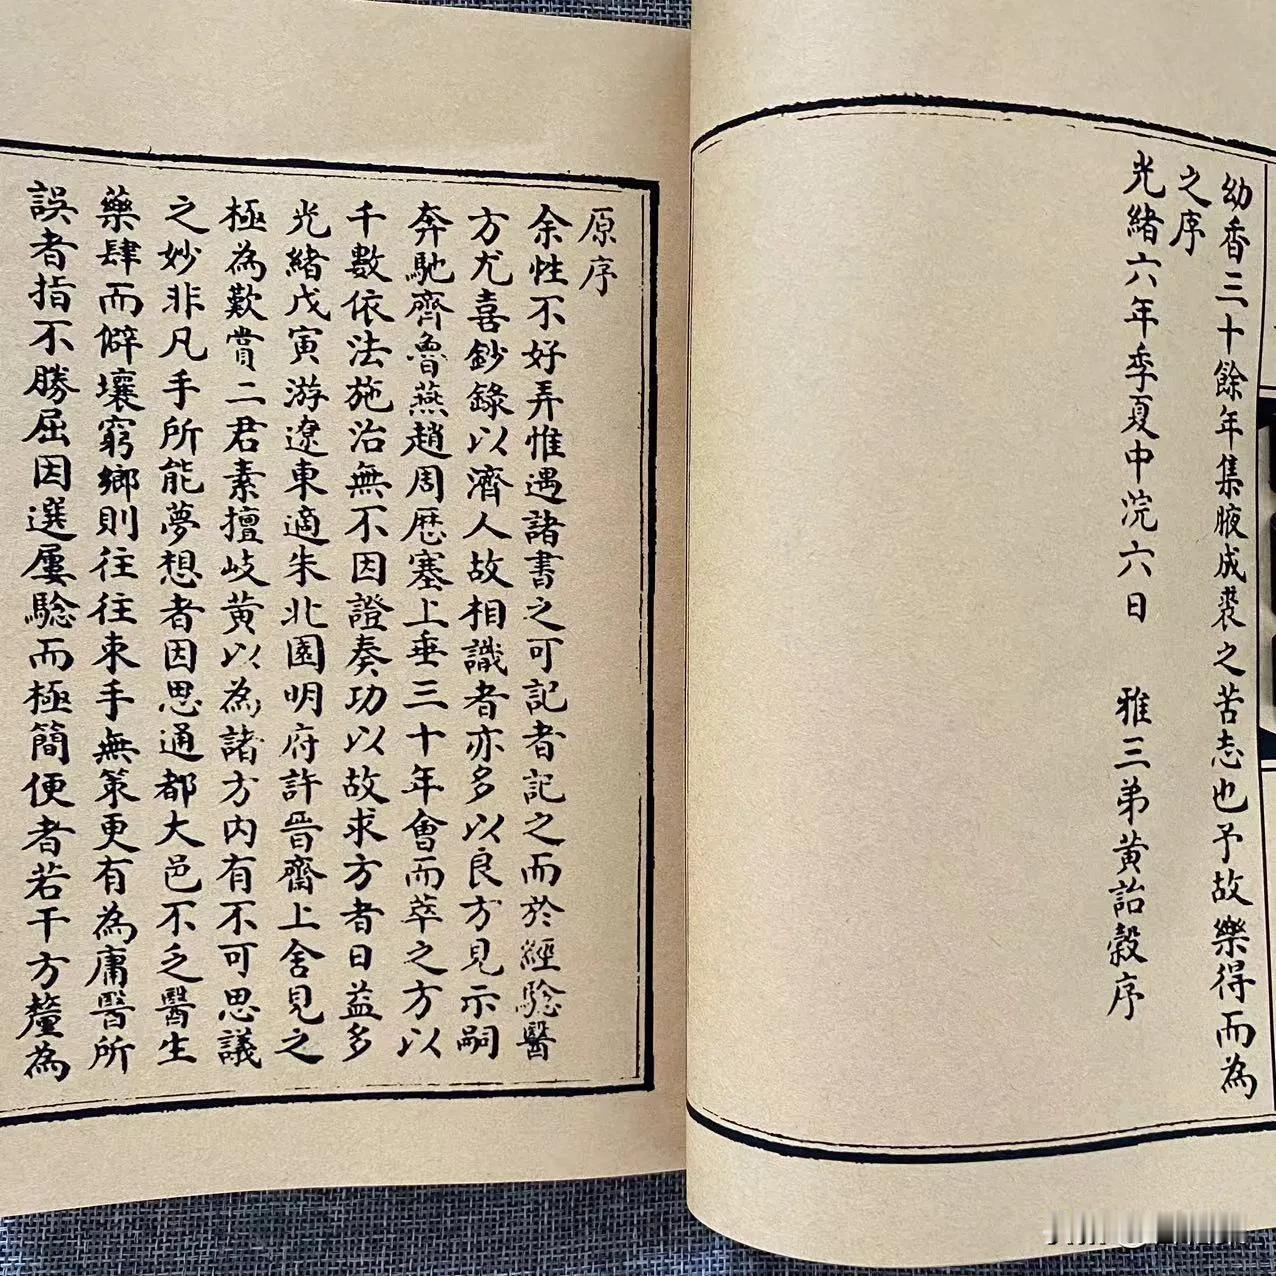 幼香三十餘年集腋成裘之苦志也予故樂得而為
之序
光緒六年季夏中浣六日　雅三弟黃詒穀序
原序
余性不好弄惟遇諸書之可記者記之而於經驗醫
方尤喜鈔錄以濟人故相識者亦多以良方見示嗣
奔馳齊魯燕趙周歷塞上垂三十年會而萃之方以
千數依法施治無不因證奏功以故求方者日益多
光緒戊寅游遼東適朱北園明府許晉齋上舍見之
極為歎賞二君素擅岐黃以為諸方內有不可思議
之妙非凡手所能夢想者因思通都大邑不乏醫生
藥肆而僻壤窮鄉則往往束手無策更有為庸醫所
誤者指不勝屈因選屢驗而極簡便者若干方釐為